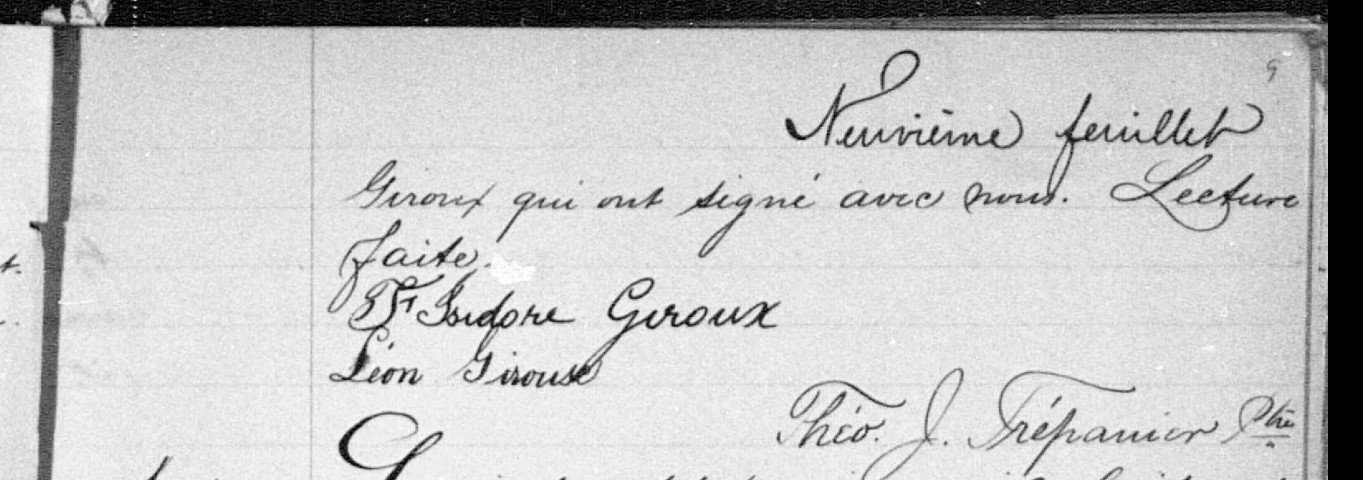 9
Neuvième feuillet
Giroux qui ont signé avec nous. Lecture
faite.
Isidore Giroux
Léon Giroux
Théo. J. Trépanier Ptre